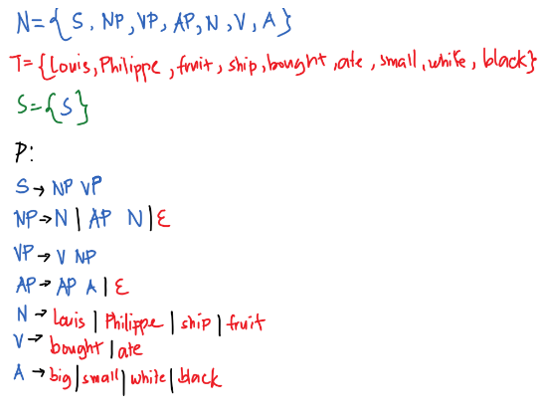 N={S, NP, VP, AP, N, V, A}
T={Louis, Philippe, fruit, ship, bought, ate, small, white, black}
S={S}
P:
S→ NP VP
NP→N | AP N | ε
VP→ V NP
AP→ AP A | ε
N → Louis | Philippe | ship | fruit
V→ bought | ate
A → big | small | white | black